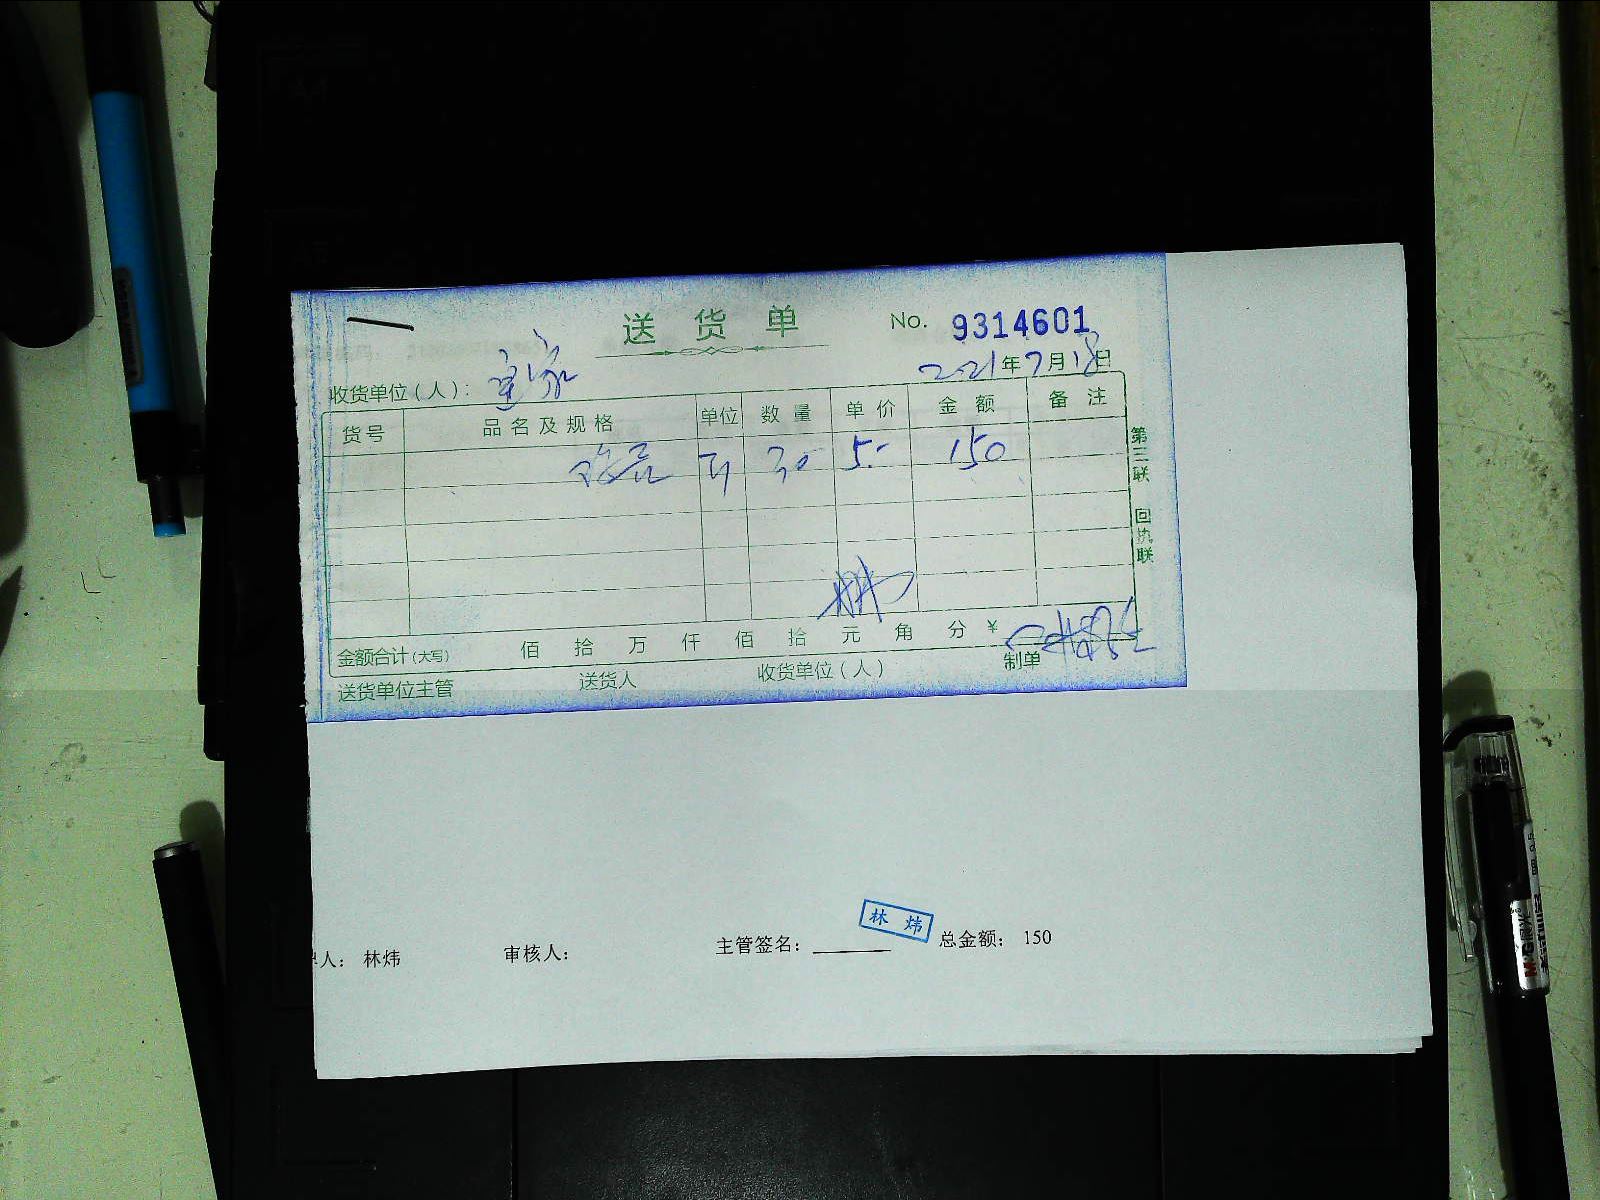 送货单 No. 9314601
2021年7月18日
收货单位(人):
货号 品名及规格 单位 数量 单价 金额 备注
30 5.- 150
第三联 回执联
金额合计(大写) 佰 拾 万 仟 佰 拾 元 角 分 ¥
送货单位主管 送货人 收货单位(人) 制单
林 炜
人: 林炜 审核人: 主管签名: 总金额: 150
M&G